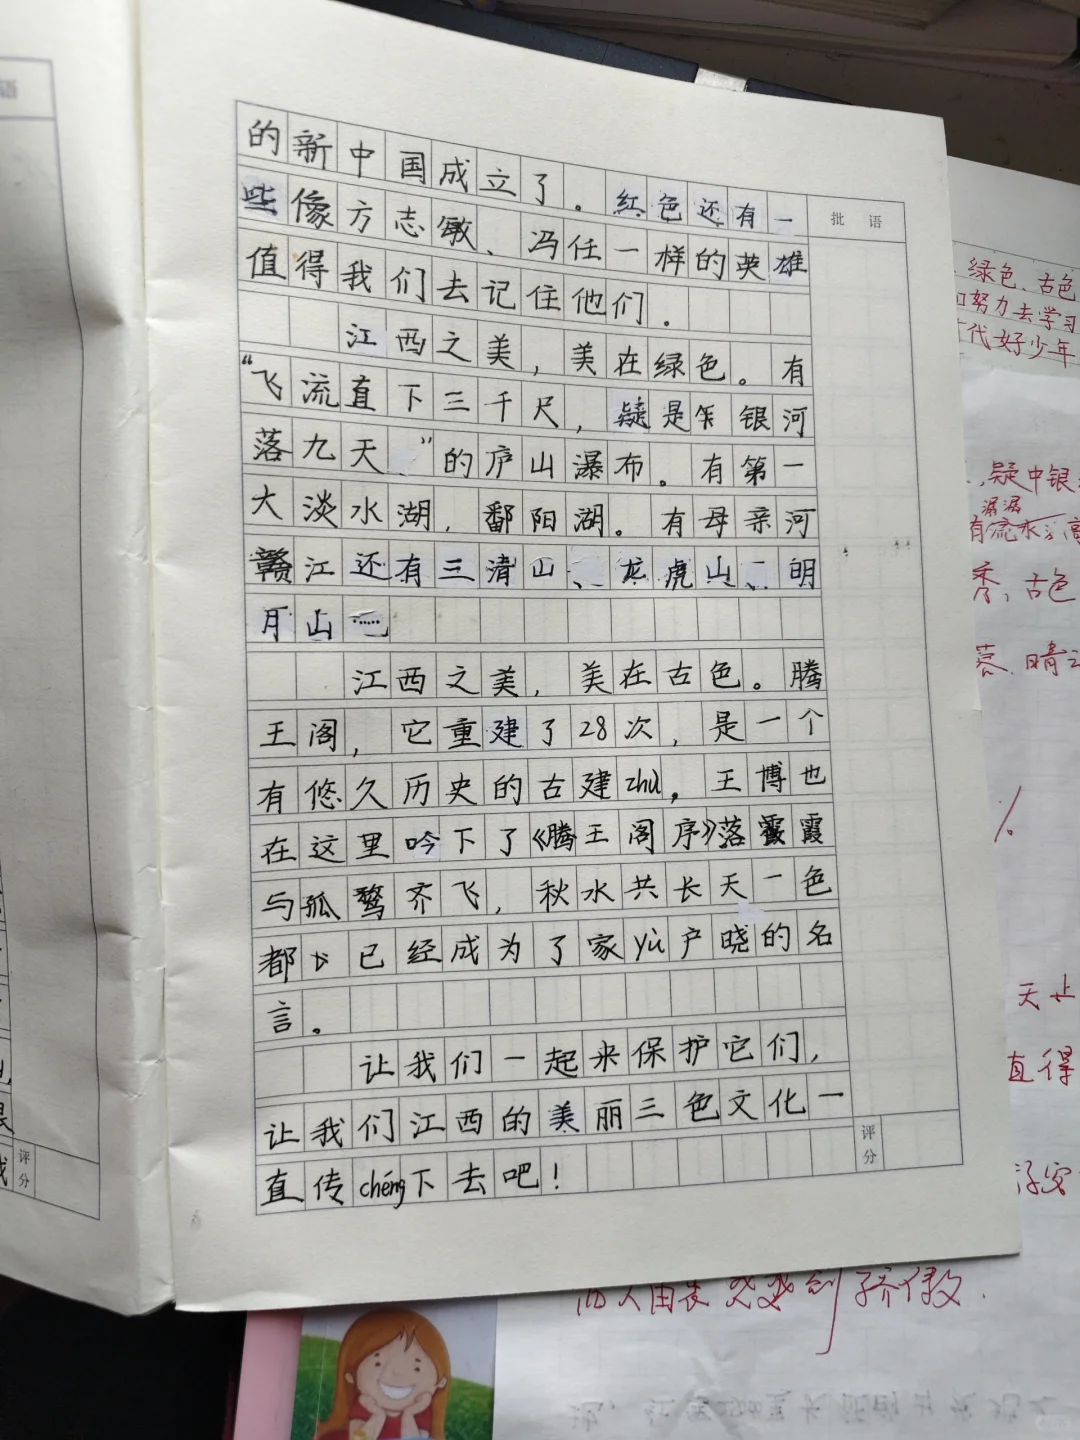 的新中国成立了。红色还有一
些像方志敏、冯任一样的英雄
值得我们去记住他们.
江西之美,美在绿色。有
“飞流直下三千尺,疑是银河
落九天”的庐山瀑布。有第一
大淡水湖,鄱阳湖。有母亲河
赣江还有三清山、龙虎山、明
月山……
江西之美,美在古色。腾
王阁,它重建了28次,是一个
有悠久历史的古建zhù,王博也
在这里吟下了《腾王阁序》落霞
与孤鹜齐飞,秋水共长天一色
都已经成为了家yù产晓的名
言。
让我们一起来保护它们,
让我们江西的美丽三色文化一
直传chéng下去吧!
批语
评分
评分
绿色、古色
努力去学习
代好少年
疑中银
潺潺
有流水
秀、古色
天上
直得